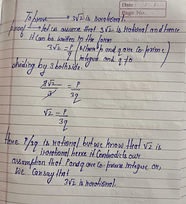 Date
Page No.
To prove → 3√2 is irrational.
proof → let us assume that 3√2 is rational and hence
it can be written in the form
3√2 = p/q (where p and q are co-prime
integers and q≠0
dividing by 3 both side.
3√2/3 = p/3q
√2 = p/3q
Here P/3q is rational but we know that √2 is
irrational hence it contradicts our
assumption that P and q are co-prime integer or,
We can say that
3√2 is irrational.